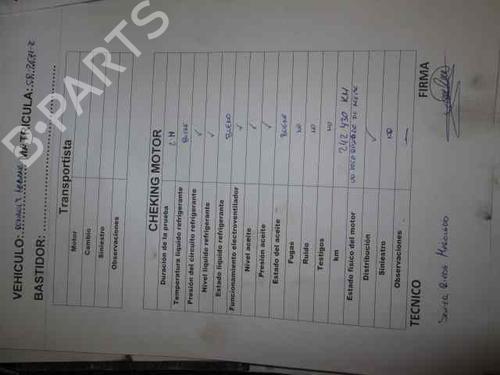 VEHICULO: RENAULT MEGANE MATRICULA:
BASTIDOR:
Transportista
Motor
Cambio
Siniestro
Observaciones
CHEKING MOTOR
Duración de la prueba 2 H
Temperatura liquido refrigerante BUENA
Presión del circuito refrigerante ✓
Nivel liquido refrigerante ✓
Estado liquido refrigerante BUENO
Funcionamiento electroventilador ✓
Nivel aceite ✓
Presión aceite ✓
Estado del aceite BUENO
Fugas NO
Ruido NO
Testigos NO
km 242.430 KM
Estado físico del motor
Distribución ✓
Siniestro NO
Observaciones —
TECNICO
FIRMA
B-PARTS